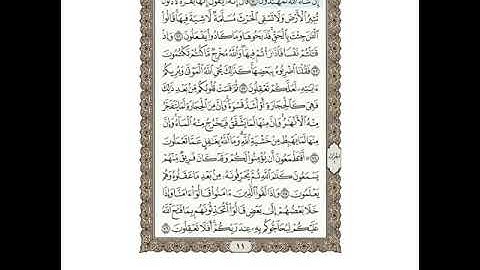 إِن شَآءَ ٱللَّهُ لَمُهۡتَدُونَ ۝٧٠ قَالَ إِنَّهُۥ يَقُولُ إِنَّهَا بَقَرَةٞ لَّا ذَلُولٞ
تُثِيرُ ٱلۡأَرۡضَ وَلَا تَسۡقِي ٱلۡحَرۡثَ مُسَلَّمَةٞ لَّا شِيَةَ فِيهَاۚ قَالُواْ
ٱلۡـَٰٔنَ جِئۡتَ بِٱلۡحَقِّۚ فَذَبَحُوهَا وَمَا كَادُواْ يَفۡعَلُونَ ۝٧١ وَإِذۡ
قَتَلۡتُمۡ نَفۡسٗا فَٱدَّٰرَٰٔتُمۡ فِيهَاۖ وَٱللَّهُ مُخۡرِجٞ مَّا كُنتُمۡ تَكۡتُمُونَ
۝٧٢ فَقُلۡنَا ٱضۡرِبُوهُ بِبَعۡضِهَاۚ كَذَٰلِكَ يُحۡيِ ٱللَّهُ ٱلۡمَوۡتَىٰ وَيُرِيكُمۡ
ءَايَٰتِهِۦ لَعَلَّكُمۡ تَعۡقِلُونَ ۝٧٣ ثُمَّ قَسَتۡ قُلُوبُكُم مِّنۢ بَعۡدِ ذَٰلِكَ
فَهِيَ كَٱلۡحِجَارَةِ أَوۡ أَشَدُّ قَسۡوَةٗۚ وَإِنَّ مِنَ ٱلۡحِجَارَةِ لَمَا يَتَفَجَّرُ
مِنۡهُ ٱلۡأَنۡهَٰرُۚ وَإِنَّ مِنۡهَا لَمَا يَشَّقَّقُ فَيَخۡرُجُ مِنۡهُ ٱلۡمَآءُۚ وَإِنَّ
مِنۡهَا لَمَا يَهۡبِطُ مِنۡ خَشۡيَةِ ٱللَّهِۗ وَمَا ٱللَّهُ بِغَٰفِلٍ عَمَّا تَعۡمَلُونَ
۝٧٤ أَفَتَطۡمَعُونَ أَن يُؤۡمِنُواْ لَكُمۡ وَقَدۡ كَانَ فَرِيقٞ مِّنۡهُمۡ
يَسۡمَعُونَ كَلَٰمَ ٱللَّهِ ثُمَّ يُحَرِّفُونَهُۥ مِنۢ بَعۡدِ مَا عَقَلُوهُ وَهُمۡ
يَعۡلَمُونَ ۝٧٥ وَإِذَا لَقُواْ ٱلَّذِينَ ءَامَنُواْ قَالُوٓاْ ءَامَنَّا وَإِذَا
خَلَا بَعۡضُهُمۡ إِلَىٰ بَعۡضٖ قَالُوٓاْ أَتُحَدِّثُونَهُم بِمَا فَتَحَ ٱللَّهُ
عَلَيۡكُمۡ لِيُحَآجُّوكُم بِهِۦ عِندَ رَبِّكُمۡۚ أَفَلَا تَعۡقِلُونَ ۝٧٦
١١